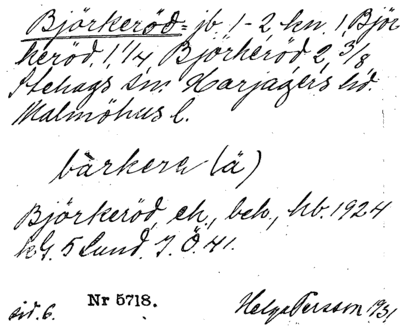 Björkeröd = jb. 1-2, kn. 1, Björ
keröd, 1, 1/4, Björkeröd, 2, 3/8
Stehags sn. Harjagers hd.
Malmöhus l.
bàrkera (ä)
Björkeröd, eh., beb., hb. 1924
kbl. 5 Lund. J. Ö. 41.
sid. 6. Nr 5718. Helge Persson 1931